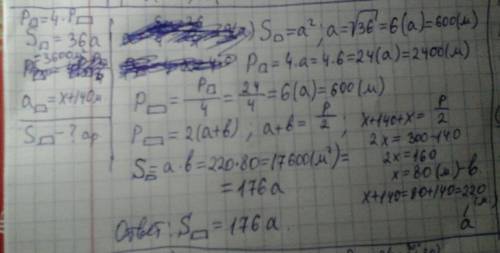 P□ = 4 · P▭
S□ = 36 а
= 3600 м²
a▭ = x+140м
S▭ - ? ар
S□ = a²; a = √36 = 6(а) = 600(м)
P□ = 4·a = 4·6 = 24(а) = 2400(м)
P▭ = P□/4 = 24/4 = 6(а) = 600(м)
P▭ = 2(a+b), a+b = P/2; x+140+x = P/2
2x = 300-140
2x = 160
x = 80(м)-b.
x+140 = 80+140 = 220 (м)
a
S▭ = a·b = 220·80 = 17600(м²) =
= 176 а
Ответ: S▭ = 176 а.